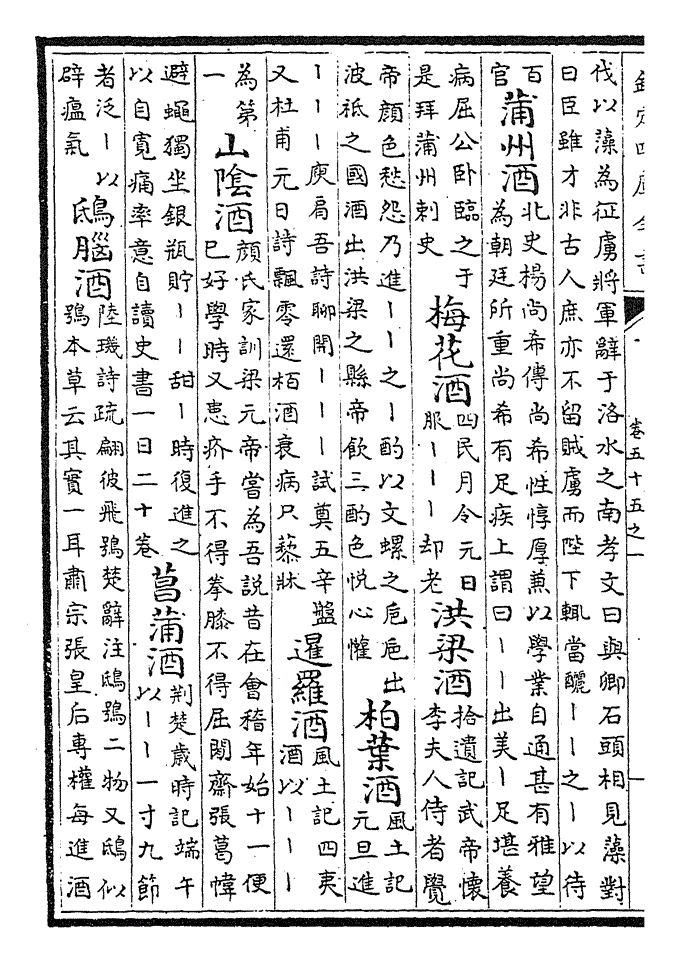 欽定四庫全書
卷五十五之一
伐以藻為征虜將軍辭于洛水之南孝文曰與卿石頭相見藻對
曰臣雖才非古人庶亦不留賊虜而陛下輒當釃丨丨之丨以待
百
官
蒲州酒
北史楊尚希傳尚希性惇厚兼以學業自通甚有雅望
為朝廷所重尚希有足疾上謂曰丨丨出美丨足堪養
病屈公卧臨之于
是拜蒲州刺史
梅花酒
四民月令元日
服丨丨丨却老
洪梁酒
拾遺記武帝懷
李夫人侍者覺
帝顔色愁怨乃進丨丨之丨酌以文螺之巵巵出
波祗之國酒出洪梁之縣帝飲三酌色悅心懽
柏葉酒
風土記
元旦進
丨丨丨庾肩吾詩聊開丨丨丨試奠五辛盤
又杜甫元日詩飄零還栢酒衰病只藜牀
暹羅酒
風土記四夷
酒以丨丨丨
為第
一
山陰酒
顔氏家訓梁元帝嘗為吾說昔在會稽年始十一便
已好學時又患疥手不得拳膝不得屈閉齋張葛幃
避蠅獨坐銀瓶貯丨丨甜丨時復進之
以自寬痛率意自讀史書一日二十卷
菖蒲酒
荆楚歲時記端午
以丨丨一寸九節
者泛丨以
辟瘟氣
鴟腦酒
陸璣詩疏翩彼飛鴞楚辭注鴟鴞二物又鴟似
鴞本草云其實一耳肅宗張皇后專權每進酒